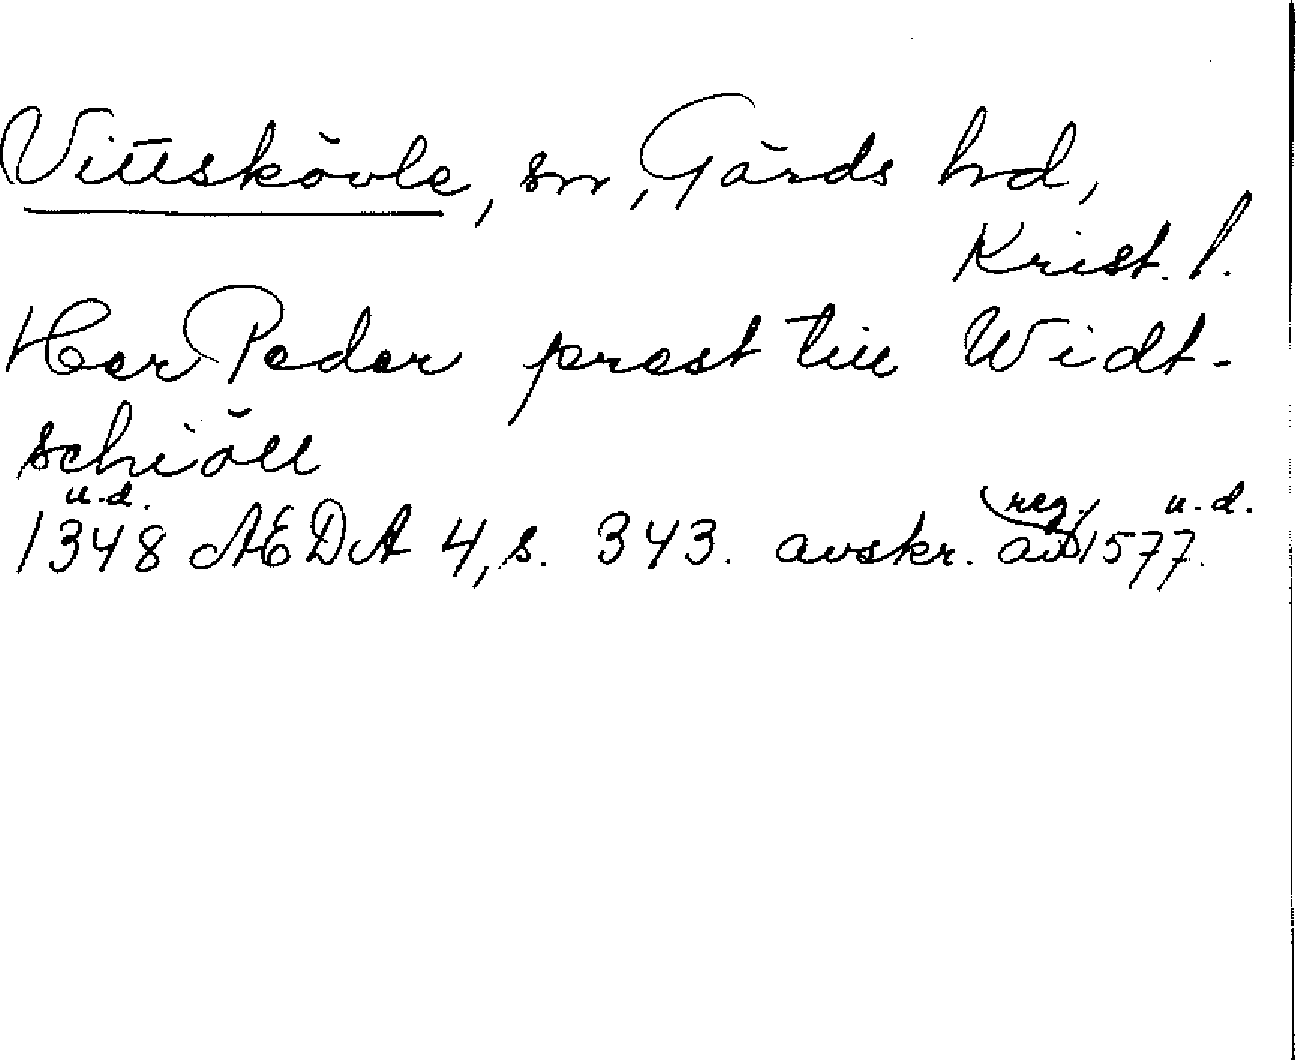 Vittskövle, sn, Gärds hd,
Krist. l.
Her Peder prest till Widt-
schiöll
u.d.
1348 ÆDA 4, s. 343. avskr. av reg. 1577. u.d.